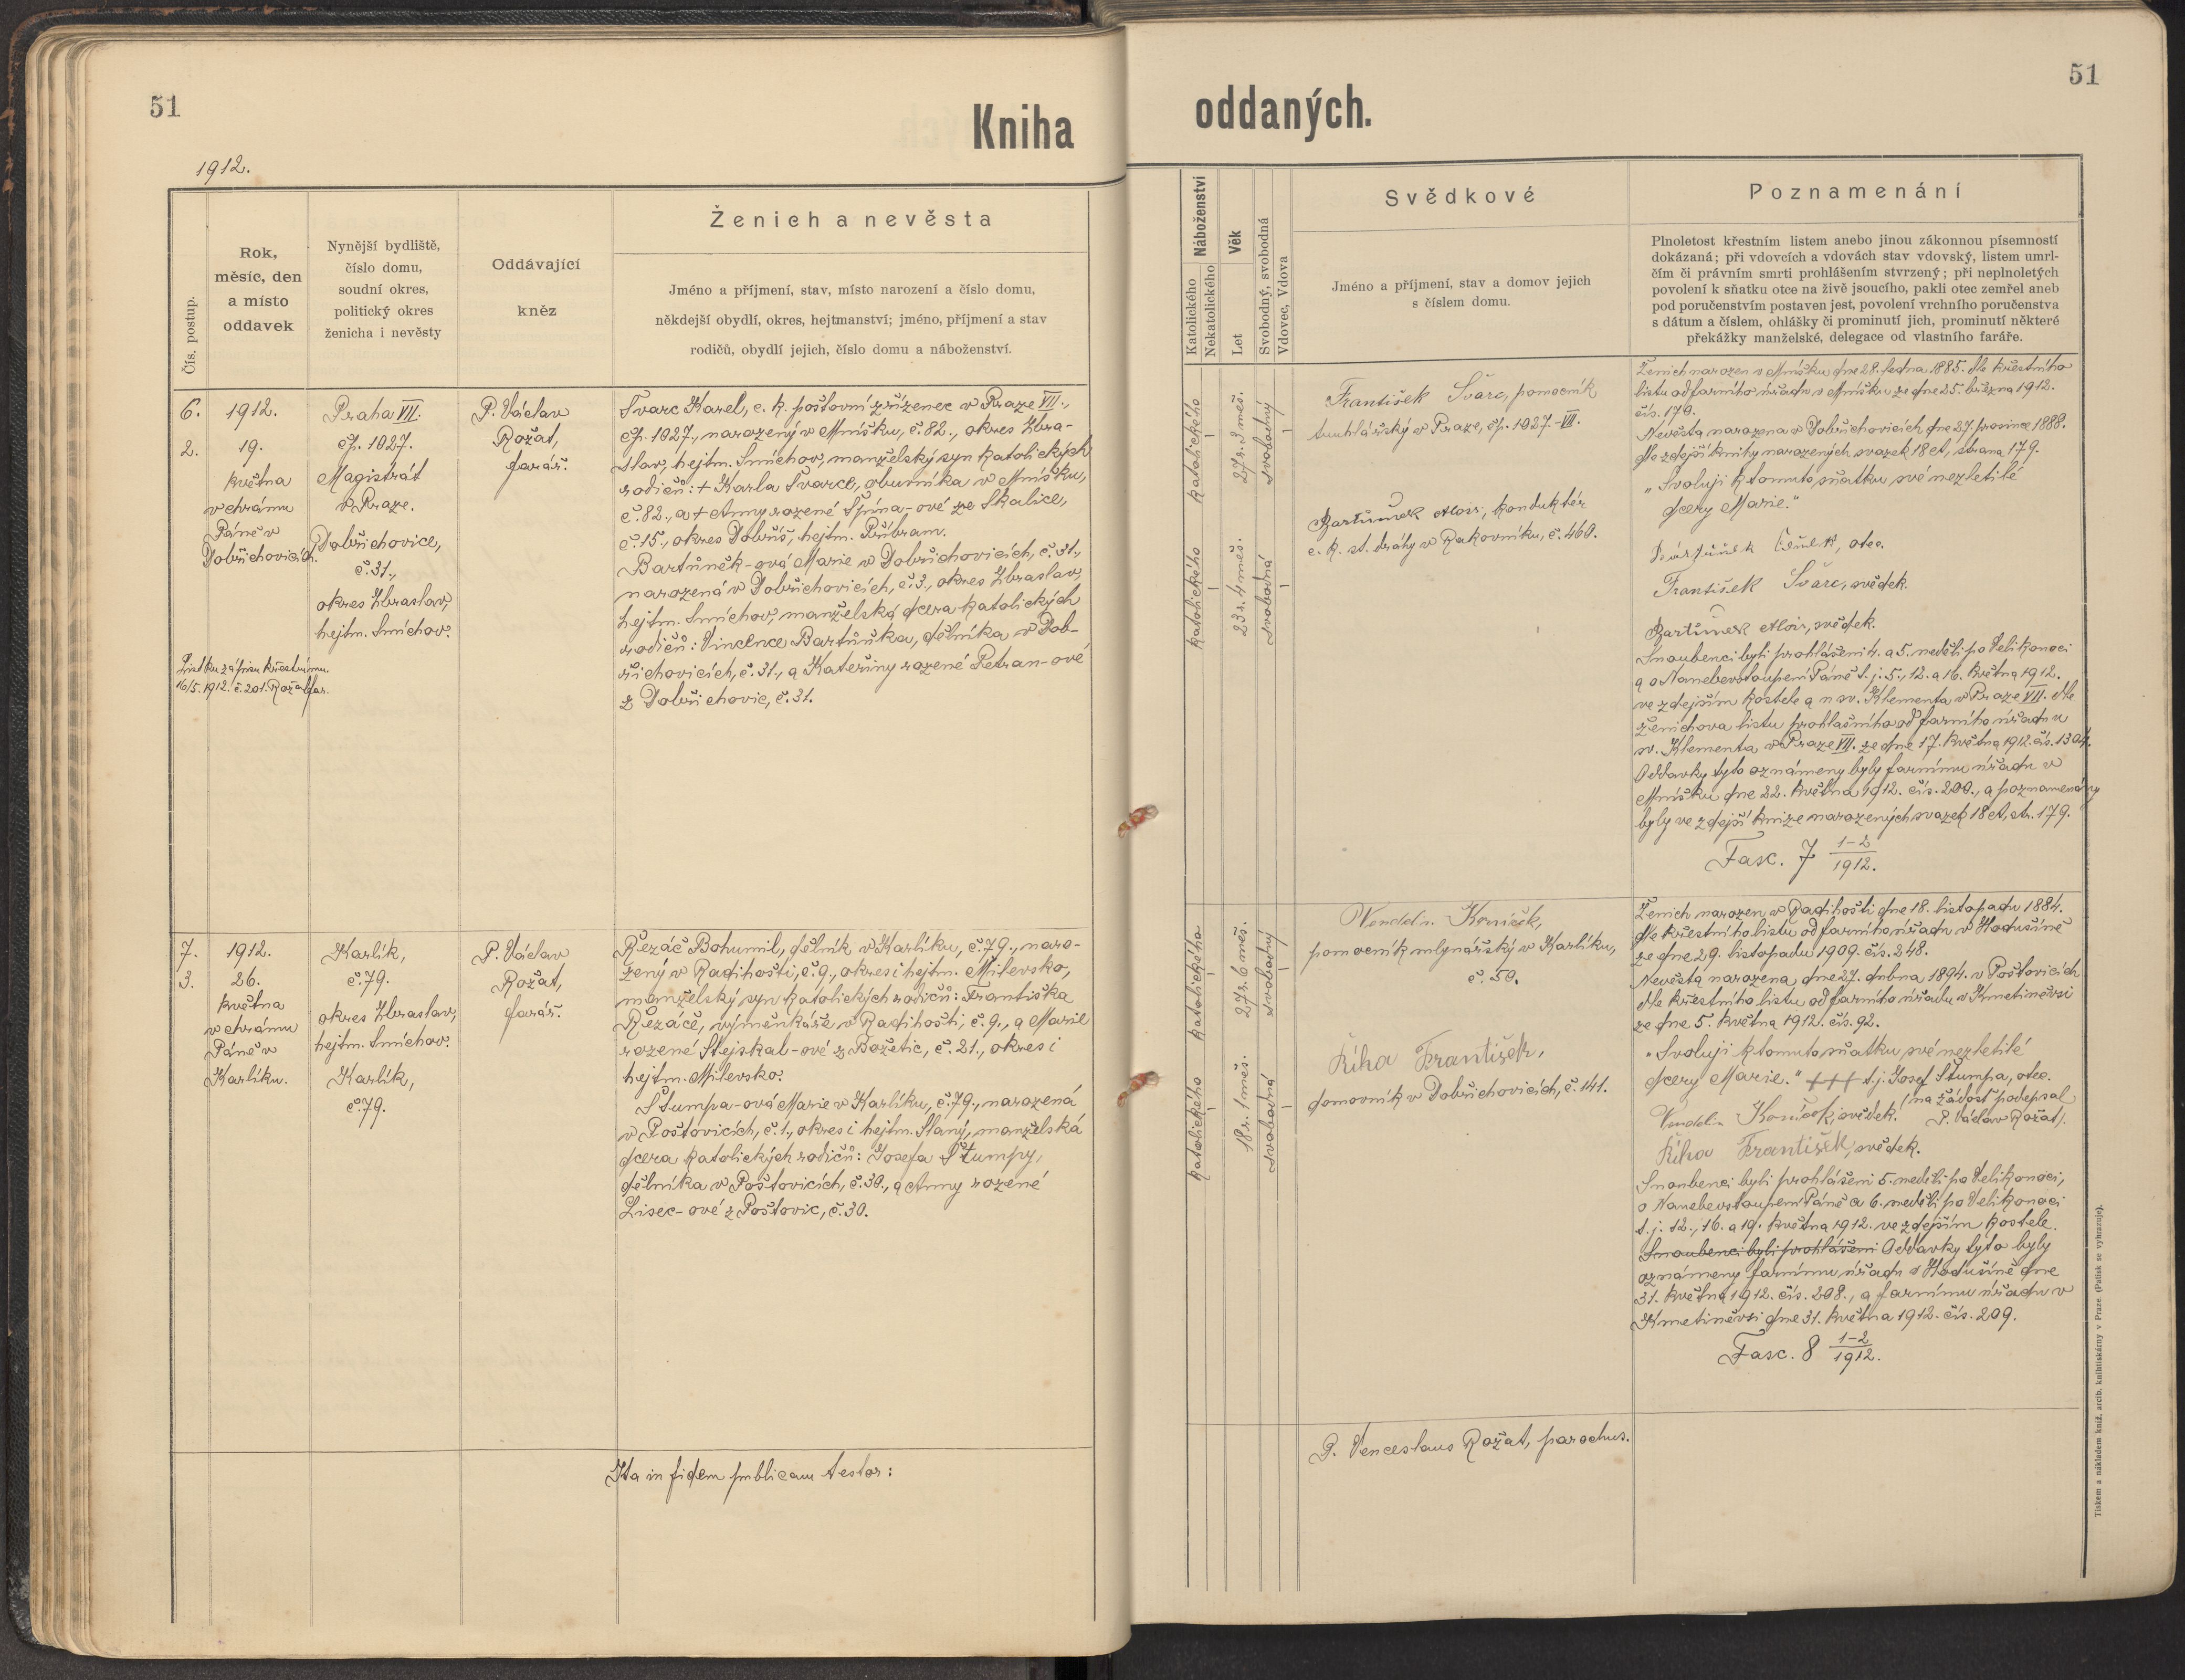 51
Kniha
1912.
Čís. postup.
Rok,
měsíc, den
a místo
oddavek
Nynější bydliště,
číslo domu,
soudní okres,
politický okres
ženicha i nevěsty
Oddávající
kněz
Ženich a nevěsta
Jméno a příjmení, stav, místo narození a číslo domu,
někdejší obydlí, okres, hejtmanství; jméno, příjmení a stav
rodičů, obydlí jejich, číslo domu a náboženství.
6.
2.
1912.
19.
května
v chrámu
Páně v
Dobřichovicích.
Praha VII.
čp. 1027.
Magistrát
v Praze.
Dobřichovice,
č. 31.,
okres Zbraslav,
hejtm. Smíchov.
List ku zápisu křestnímu
16/5. 1912. č. 201. Rožat far.
P. Václav
Rožat,
farář.
Švarc Karel, c. k. poštovní zřízenec v Praze VII.,
čp. 1027., narozený v Mníšku, č. 82., okres Zbra-
slav, hejtm. Smíchov, manželský syn katolických
rodičů: + Karla Švarce, obuvníka v Mníšku,
č. 82., a + Anny rozené Špína-ové ze Skalice,
č. 15., okres Dobříš, hejtm. Příbram.
Bartůněk-ová Marie v Dobřichovicích, č. 31.,
narozená v Dobřichovicích, č. 3., okres Zbraslav,
hejtm. Smíchov, manželská dcera katolických
rodičů: Vincence Bartůňka, dělníka v Dob-
řichovicích, č. 31., a Kateřiny rozené Petran-ové
z Dobřichovic, č. 31.
7.
3.
1912.
26.
května
v chrámu
Páně v
Karlíku.
Karlík,
č. 79.
okres Zbraslav,
hejtm. Smíchov.
Karlík,
č. 79.
P. Václav
Rožat,
farář.
Řezáč Bohumil, dělník v Karlíku, č. 79., naro-
zený v Radihošti, č. 9., okres i hejtm. Milevsko,
manželský syn katolických rodičů: Františka
Řezáče, výměnkáře v Radihošti, č. 9., a Marie
rozené Stejskal-ové z Božetic, č. 21., okres i
hejtm. Milevsko.
Štumpa-ová Marie v Karlíku, č. 79., narozená
v Poštovicích, č. 1., okres i hejtm. Slaný, manželská
dcera katolických rodičů: Josefa Štumpy,
dělníka v Poštovicích, č. 30., a Anny rozené
Lisec-ové z Poštovic, č. 30.
Ita in fidem publicam testor:
51
oddaných.
Náboženství
Katolického
Nekatolického
Věk
Let
Svobodný, svobodná
Vdovec, Vdova
Svědkové
Jméno a příjmení, stav a domov jejich
s číslem domu.
Poznamenání
Plnoletost křestním listem anebo jinou zákonnou písemností
dokázaná; při vdovcích a vdovách stav vdovský, listem umrl-
čím či právním smrti prohlášením stvrzený; při neplnoletých
povolení k sňatku otce na živě jsoucího, pakli otec zemřel aneb
pod poručenstvím postaven jest, povolení vrchního poručenstva
s dátum a číslem, ohlášky či prominutí jich, prominutí některé
překážky manželské, delegace od vlastního faráře.
katolického
27 r. 3 měs.
svobodný
katolického
23 r. 4 měs.
svobodná
František Švarc, pomocník
truhlářský v Praze, čp. 1027.-VII.
Bartůnek Alois, konduktér
c. k. st. dráhy v Rakovníku, č. 460.
Ženich narozen v Mníšku dne 28. ledna 1885. dle křestního
listu od farního úřadu v Mníšku ze dne 25. března 1912.
čís. 179.
Nevěsta narozena v Dobřichovicích dne 27. prosince 1888.
dle zdejší knihy narozených svazek 18 A, strana 179.
„Svoluji k tomuto sňatku své nezletilé
dcery Marie."
Bartůněk Čeněk, otec.
František Švarc, svědek.
Bartůnek Alois, svědek.
Snoubenci byli prohlášeni 4. a 5. neděli po Velikonoci
a o Nanebevstoupení Páně t. j. 5., 12. a 16. května 1912.
ve zdejším kostele a u sv. Klementa v Praze VII. dle
ženichova listu prohlašního od farního úřadu u
sv. Klementa v Praze VII. ze dne 17. května 1912. čís. 1304.
Oddavky tyto oznámeny byly farnímu úřadu v
Mníšku dne 22. května 1912. čís. 200., a poznamenány
byly ve zdejší knize narozených svazek 18 A, str. 179.
Fasc. 7 1-2/1912.
katolického
27 r. 6 měs.
svobodný
katolického
18 r. 1 měs.
svobodná
Wendelin Koníček,
pomocník mlynářský v Karlíku,
č. 50.
Říha František,
domovník v Dobřichovicích, č. 141.
Ženich narozen v Radihošti dne 18. listopadu 1884.
dle křestního listu od farního úřadu v Hodušíně
ze dne 29. listopadu 1909. čís. 248.
Nevěsta narozena dne 27. dubna 1894. v Poštovicích
dle křestního listu od farního úřadu v Kmetiněvsi
ze dne 5. května 1912. čís. 92.
„Svoluji k tomuto sňatku své nezletilé
dcery Marie." +++ t. j. Josef Štumpa, otec.
(na žádost podepsal
Vendelin Koníček, svědek. P. Václav Rožat).
Říha František, svědek.
Snoubenci byli prohlášeni 5. neděli po Velikonoci,
o Nanebevstoupení Páně a 6. neděli po Velikonoci
t. j. 12., 16. a 19. května 1912. ve zdejším kostele.
Snoubenci byli prohlášeni Oddavky tyto byly
oznámeny farnímu úřadu v Hodušíně dne
31. května 1912. čís. 208., a farnímu úřadu v
Kmetiněvsi dne 31. května 1912. čís. 209.
Fasc. 8 1-2/1912.
P. Venceslaus Rožat, parochus.
Tiskem a nákladem kníž. arcib. knihtiskárny v Praze. (Patisk se vyhrazuje).